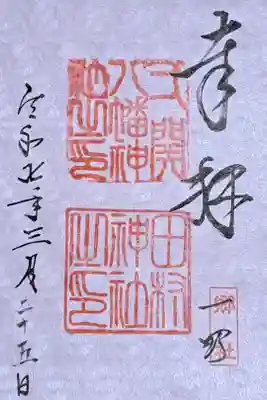 奉拝
八幡神
社之印
田村
神社
之印
令和七年三月二十五日